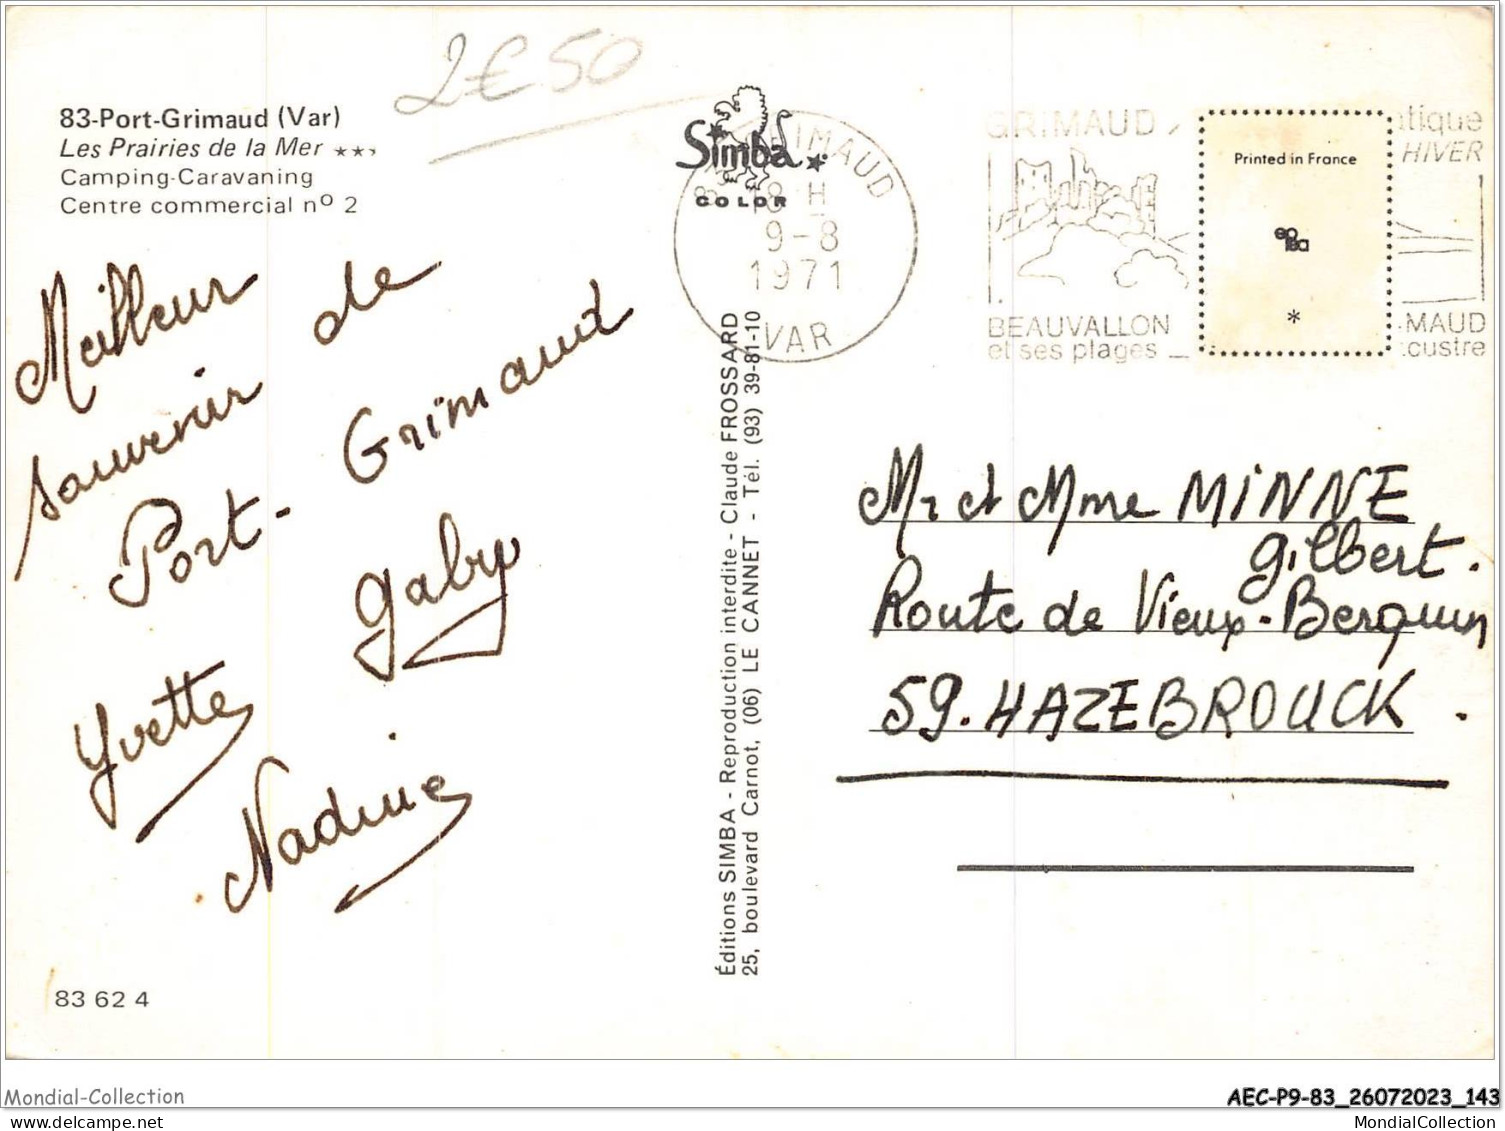 2€50
83-Port-Grimaud (Var)
Les Prairies de la Mer ★★★
Camping-Caravaning
Centre commercial nº 2
Meilleur
souvenir de
Port-Grimaud
Gaby
Yvette
Nadine
83 62 4
Simba
COLOR
GRIMAUD
18 H
9-8
1971
VAR
Éditions SIMBA - Reproduction interdite - Claude FROSSARD
25, boulevard Carnot, (06) LE CANNET - Tél. (93) 39-81-10
GRIMAUD
BEAUVALLON
et ses plages
atique
HIVER
MAUD
custre
Printed in France
*
Mr et Mme MINNE
Gilbert.
Route de Vieux-Berquin
59. HAZEBROUCK.
Mondial-Collection
AEC-P9-83_26072023_143
mondial-collection.delcampe.net
MondialCollection